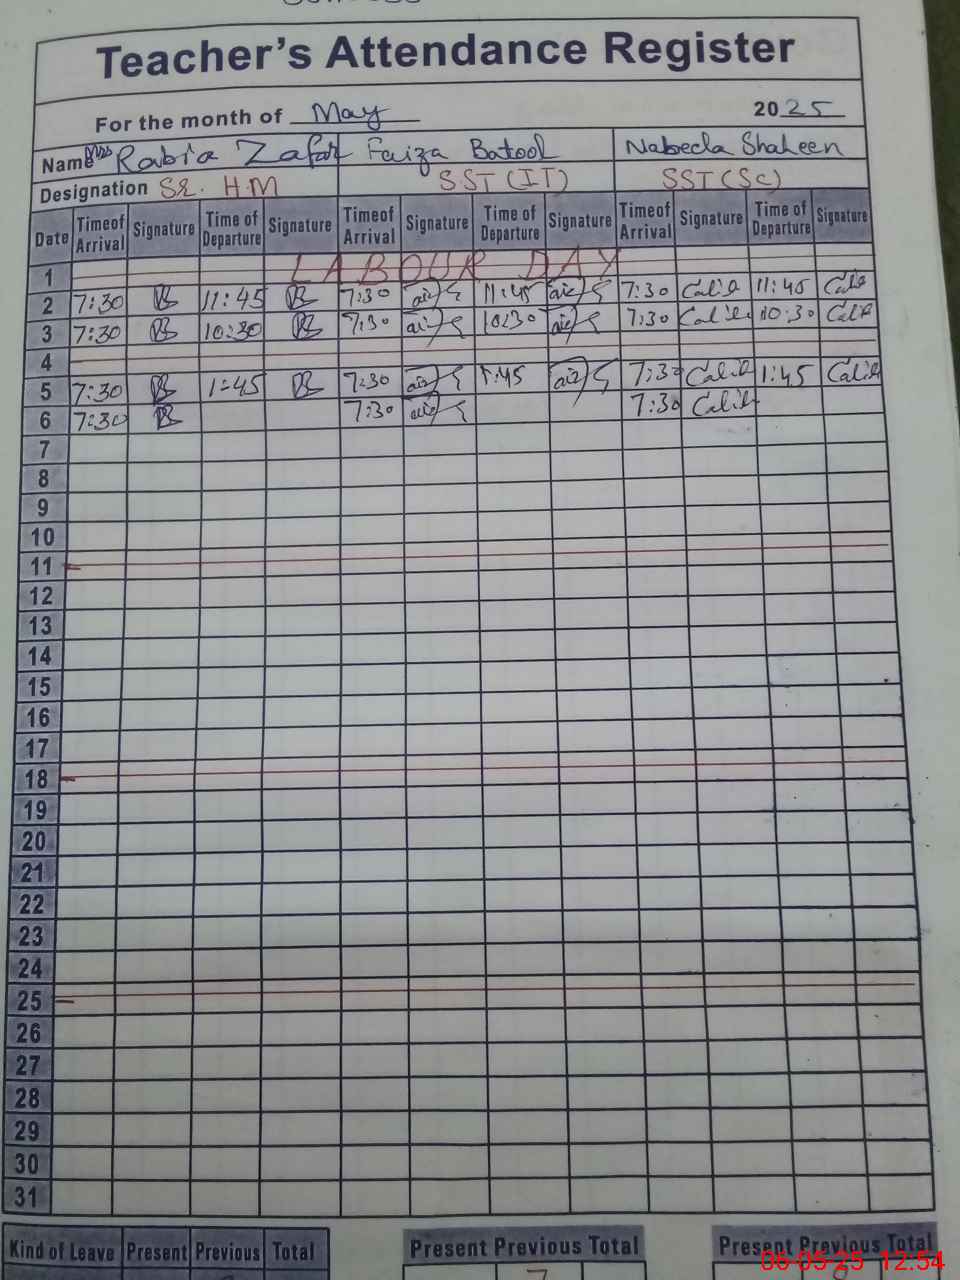 Teacher's Attendance Register
For the month of May 2025
Name Miss Rabia Zafar Faiza Batool Nabeela Shaheen
Designation Sr. H.M SST (IT) SST (Sc)
Date Timeof Arrival Signature Time of Departure Signature Timeof Arrival Signature Time of Departure Signature Timeof Arrival Signature Time of Departure Signature
1 LABOUR DAY
2 7:30 11:45 7:30 11:45 7:30 11:45
3 7:30 10:30 7:30 10:30 7:30 10:30
4
5 7:30 1:45 7:30 1:45 7:30 1:45
6 7:30 7:30 7:30
7
8
9
10
11
12
13
14
15
16
17
18
19
20
21
22
23
24
25
26
27
28
29
30
31
Kind of Leave Present Previous Total Present Previous Total Present Previous Total
06-05-25 12:54